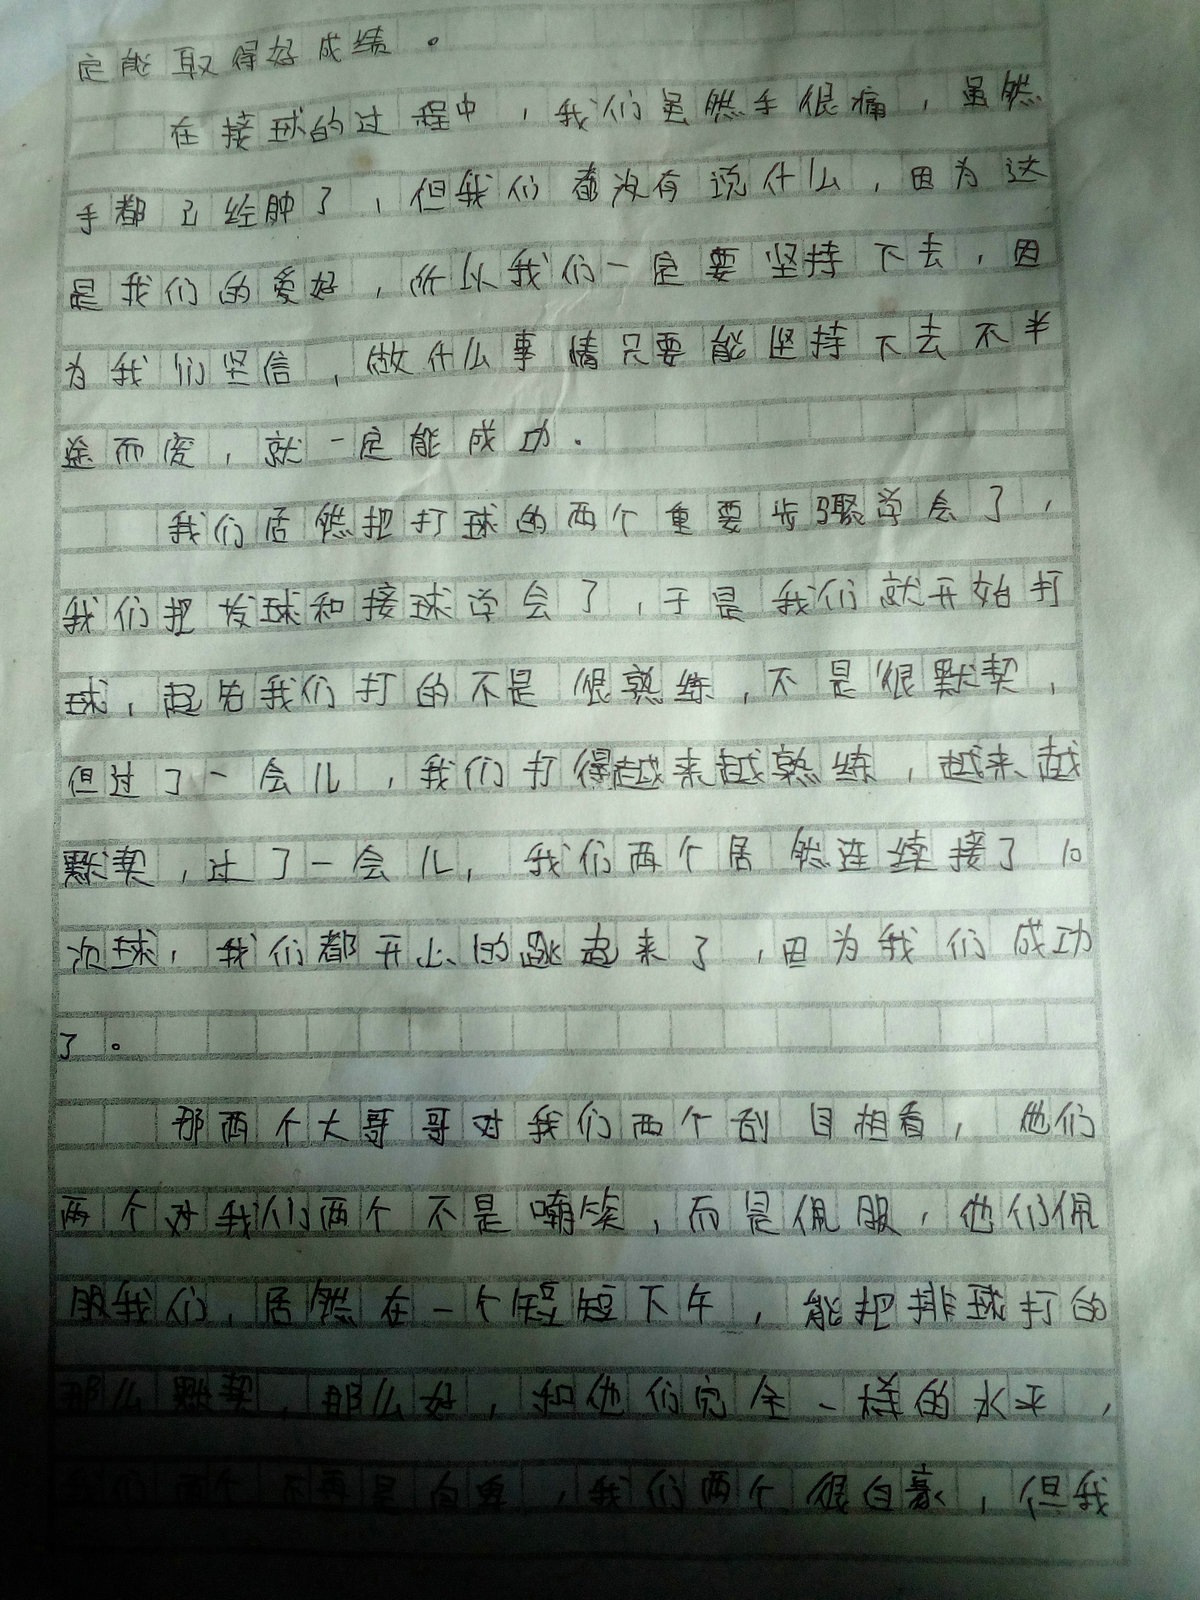 定能取得好成绩。
在接球的过程中，我们虽然手很痛，虽然
手都已经肿了，但我们都没有说什么，因为这
是我们的爱好，所以我们一定要坚持下去，因
为我们坚信，做什么事情只要能坚持下去不半
途而废，就一定能成功.
我们居然把打球的两个重要步骤学会了，
我们把发球和接球学会了，于是我们就开始打
球，起先我们打的不是很熟练，不是很默契，
但过了一会儿，我们打得越来越熟练，越来越
默契，过了一会儿，我们两个居然连续接了10
次球，我们都开心的跳起来了，因为我们成功
了。
那两个大哥哥对我们两个刮目相看，他们
两个对我们两个不是嘲笑，而是佩服，他们佩
服我们，居然在一个短短下午，能把排球打的
那么默契，那么好，和他们完全一样的水平，
我们两个不再是自卑，我们两个很自豪，但我